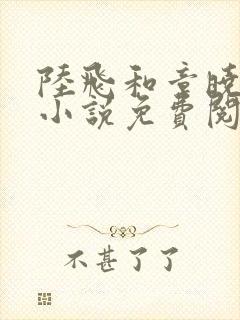 陸飛和音曉
小說免費閱
不甚了了